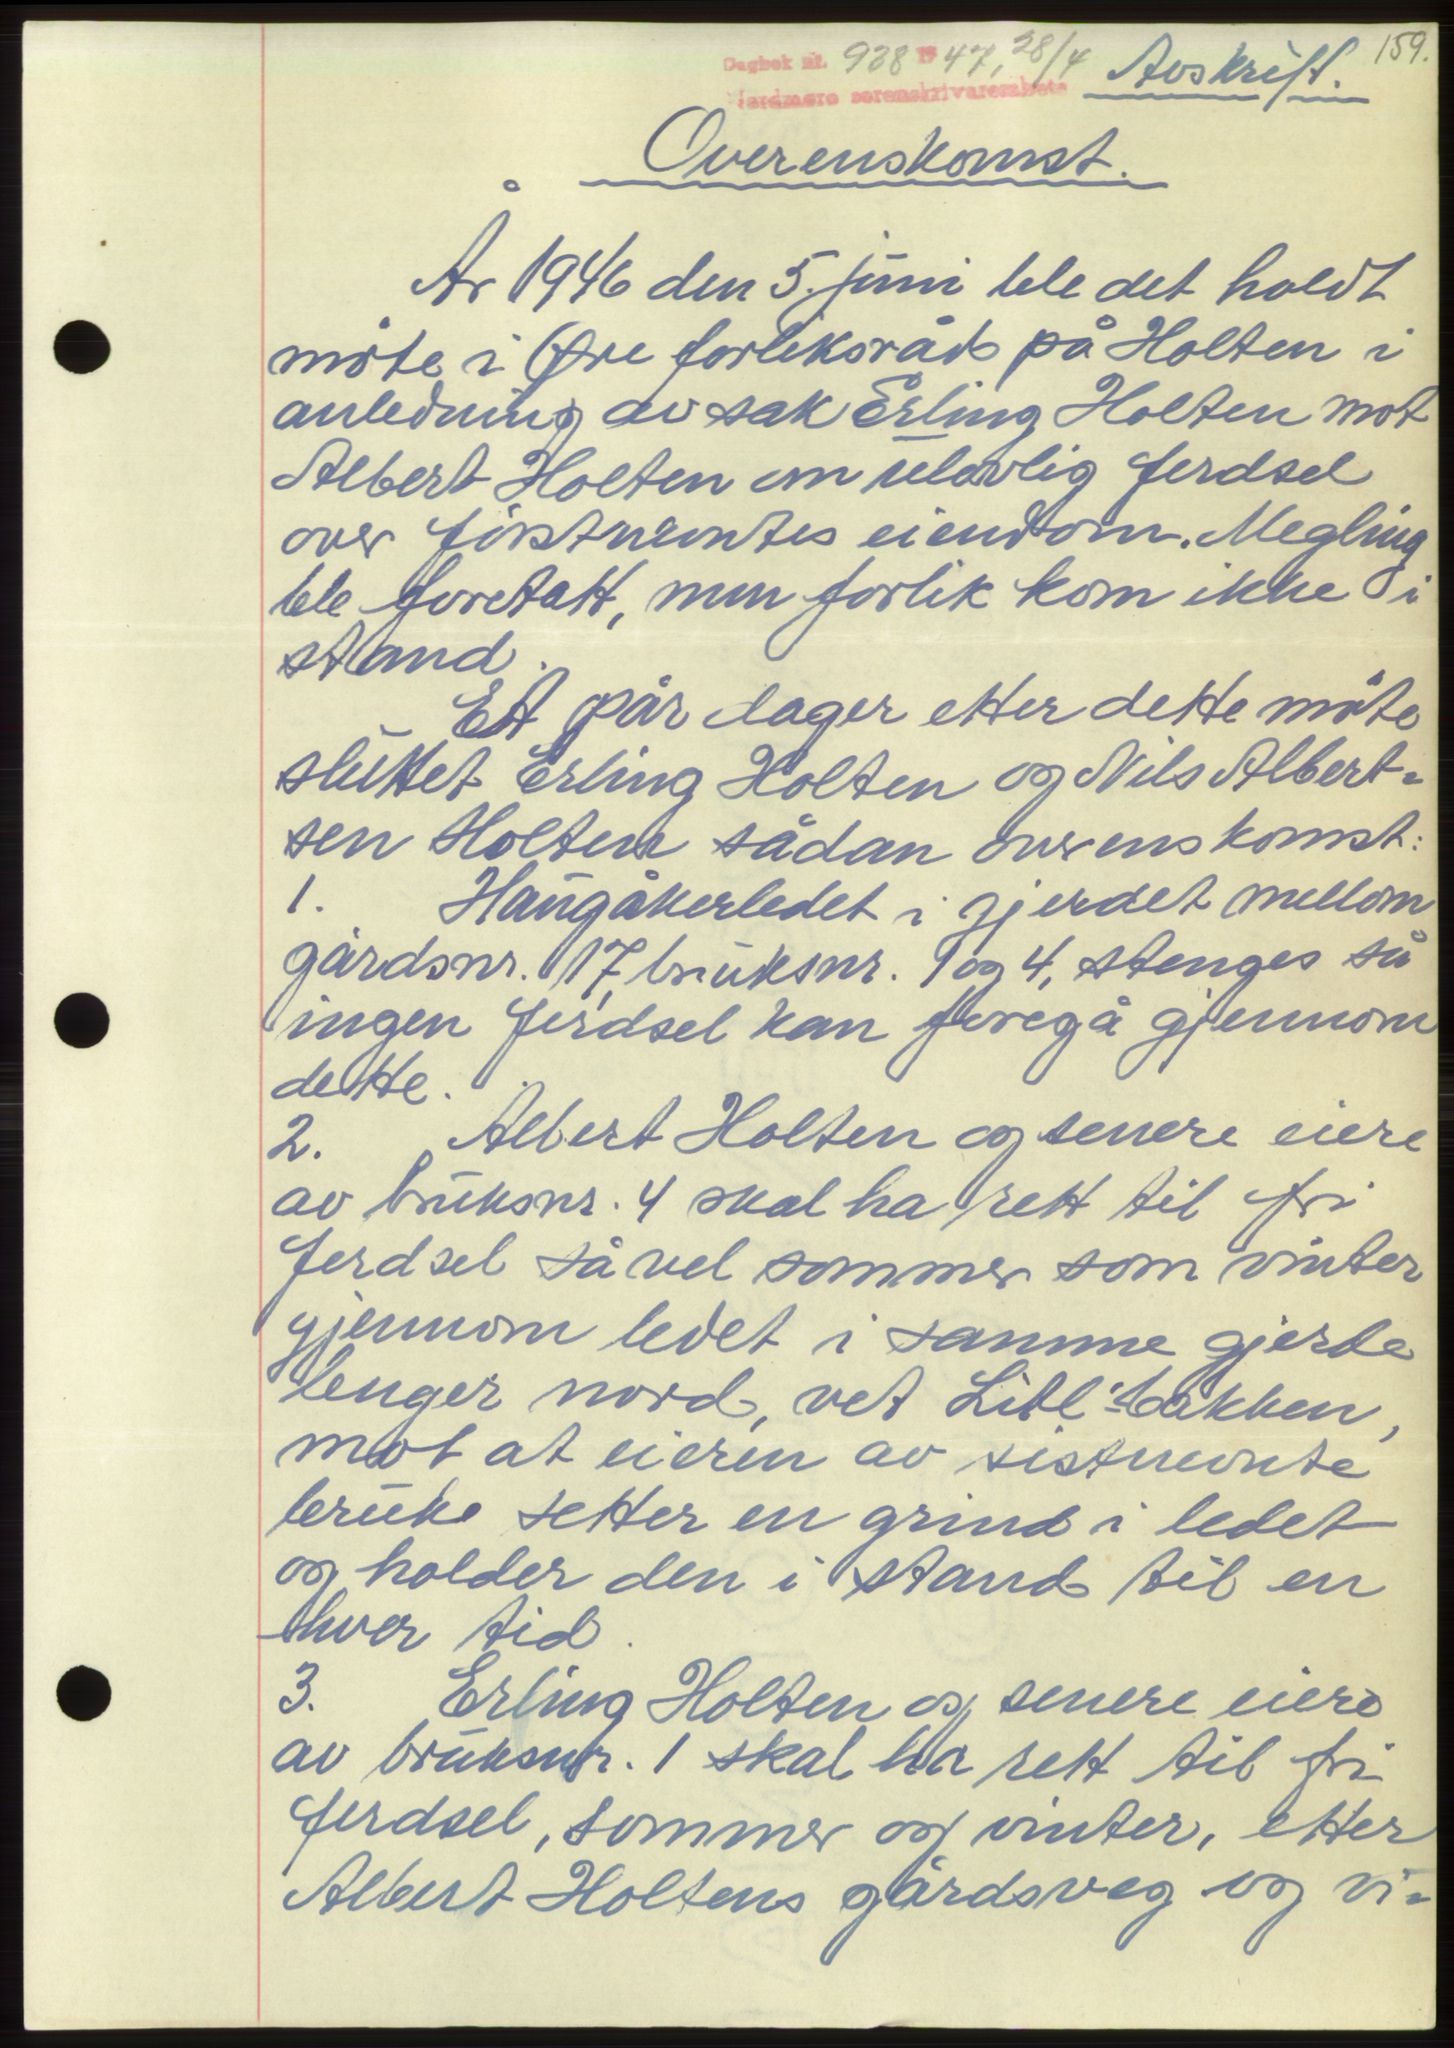 159.
Dagbok nr. 938 19 47, 28/4
Avskrift.
Nordmøre sorenskrivarembete
Overenskomst.
År 1946 den 5. juni ble det holdt
möte i Øre forliksråd på Holten i
anledning av sak Erling Holten mot
Albert Holten om ulovlig ferdsel
over förstnevntes eiendom. Megling
ble foretatt, men forlik kom ikke i
stand.
Ett pår dager etter dette möte
sluttet Erling Holten og Nils Albert-
sen Holten sådan overenskomst:
1. Haugåkerledet i gjerdet mellom
gårdsnr. 17, bruksnr. 1 og 4, stenges så
ingen ferdsel kan foregå gjennom
dette.
2. Albert Holten og senere eiere
av bruksnr. 4 skal ha rett til fri
ferdsel såvel sommer som vinter
gjennom ledet i samme gjerde
lenger nord, vet Litl-bakken,
mot at eieren av sistnevnte
bruke setter en grind i ledet
og holder den i stand til en
hver tid.
3. Erling Holten og senere eiere
av bruksnr. 1 skal ha rett til fri
ferdsel, sommer og vinter, etter
Albert Holtens gårdsveg og vi-